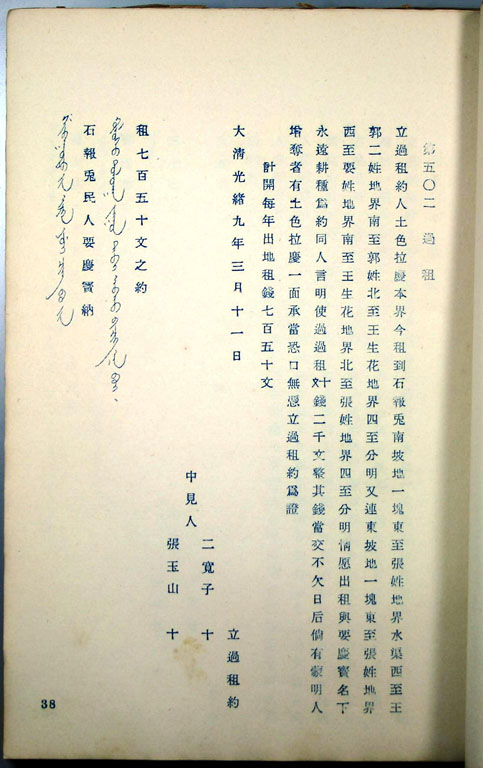 第五〇二　過　租
立過租約人土色拉慶本界今租到石報兎南坡地一塊東至張姓地界水渠西至王
郭二姓地界南至郭姓北至王生花地界四至分明又連東坡地一塊東至張姓地界
西至要姓地界南至王生花地界北至張姓地界四至分明情愿出租與要慶賓名下
永遠耕種爲約同人言明使過過租錢二千文整其錢當交不欠日后倘有蒙明人
增奪者有土色拉慶一面承當恐口無憑立過租約爲證
計開每年出地租錢七百五十文
大淸光緖九年三月十一日
立過租約
中見人　二寬子　十
張玉山　十
租七百五十文之約
石報兎民人要慶賓納
38